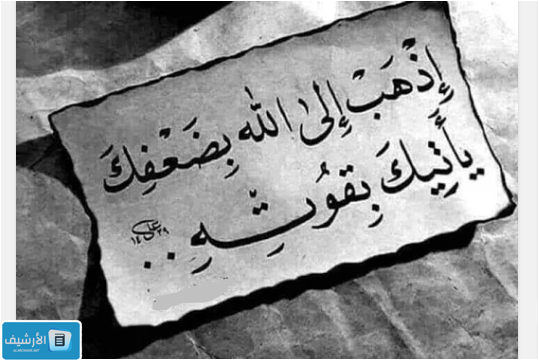 إِذْهَبْ إِلىٰ اللّٰه بِضَعْفِكَ
يأَتِيكَ بِقوُتِّهِ ..
الأرشيف